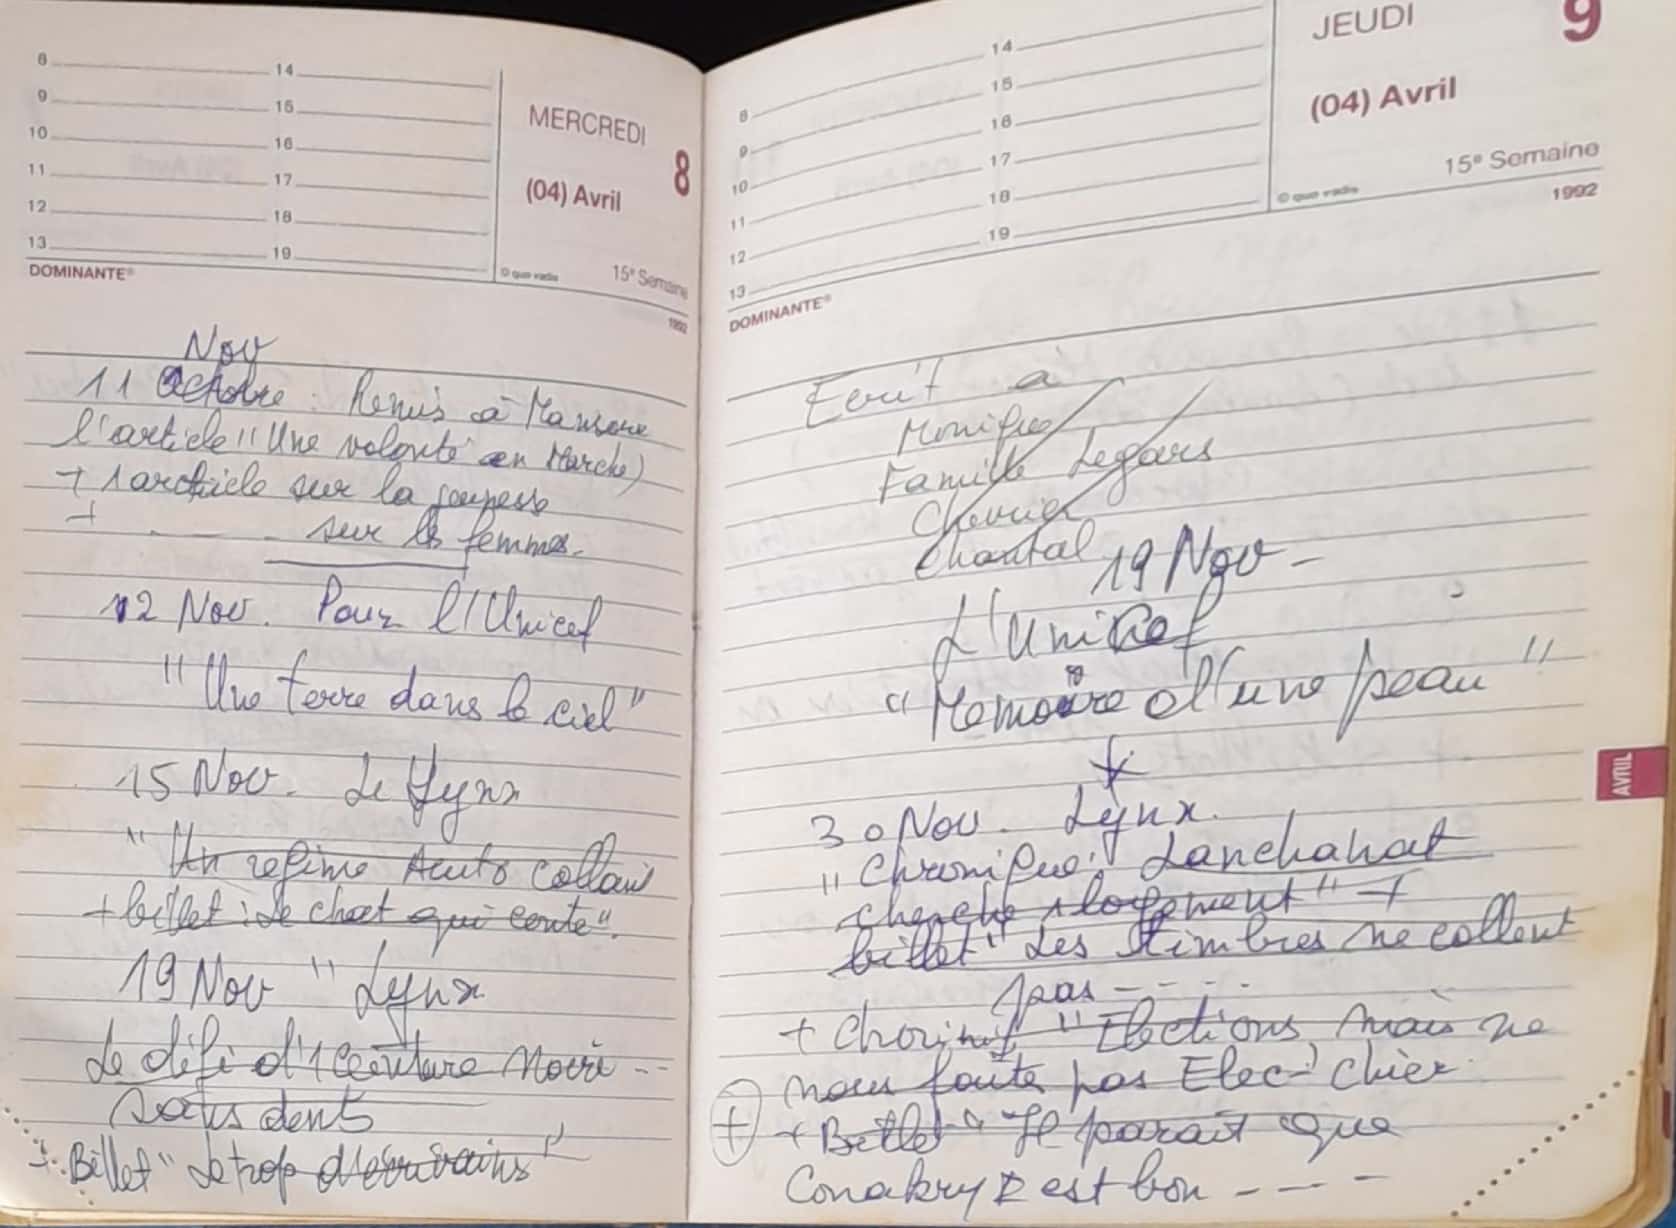 8 14
9 15
10 16
11 17
12 18
13 19
MERCREDI
8
(04) Avril
DOMINANTE®
© quo vadis
15e Semaine
1992
Nov
11 Octobre : Remis à
l'article "Une volonté en Marche)
+ 1 article sur la
+ — — - sur les femmes -
12 Nov. Pour l'Unicef
"Une terre dans le ciel"
15 Nov. Le Lynx
"Un régime Auto collant
+ billet : Le chat qui conte".
19 Nov " Lynx
Le défi d'1 Ceinture Noire --
sans dents
+ Billet " Le trop d'écrivains"
8 14
9 15
10 16
11 17
12 18
13 19
JEUDI
9
(04) Avril
15e Semaine
DOMINANTE®
© quo vadis
1992
Ecrit à
Monique
Famille Legars
Chevrier
Chantal 19 Nov -
L'Unicef
"Memoire d'une peau"
30 Nov. Lynx.
" Chronique:
cherche 1 logement" +
billet " Les timbres ne collent
pas - - - -
+ "Elections mais ne
nous faite pas Elec-chier
+ + Billet " Il parait que
Conakry est bon - - - -
AVRIL